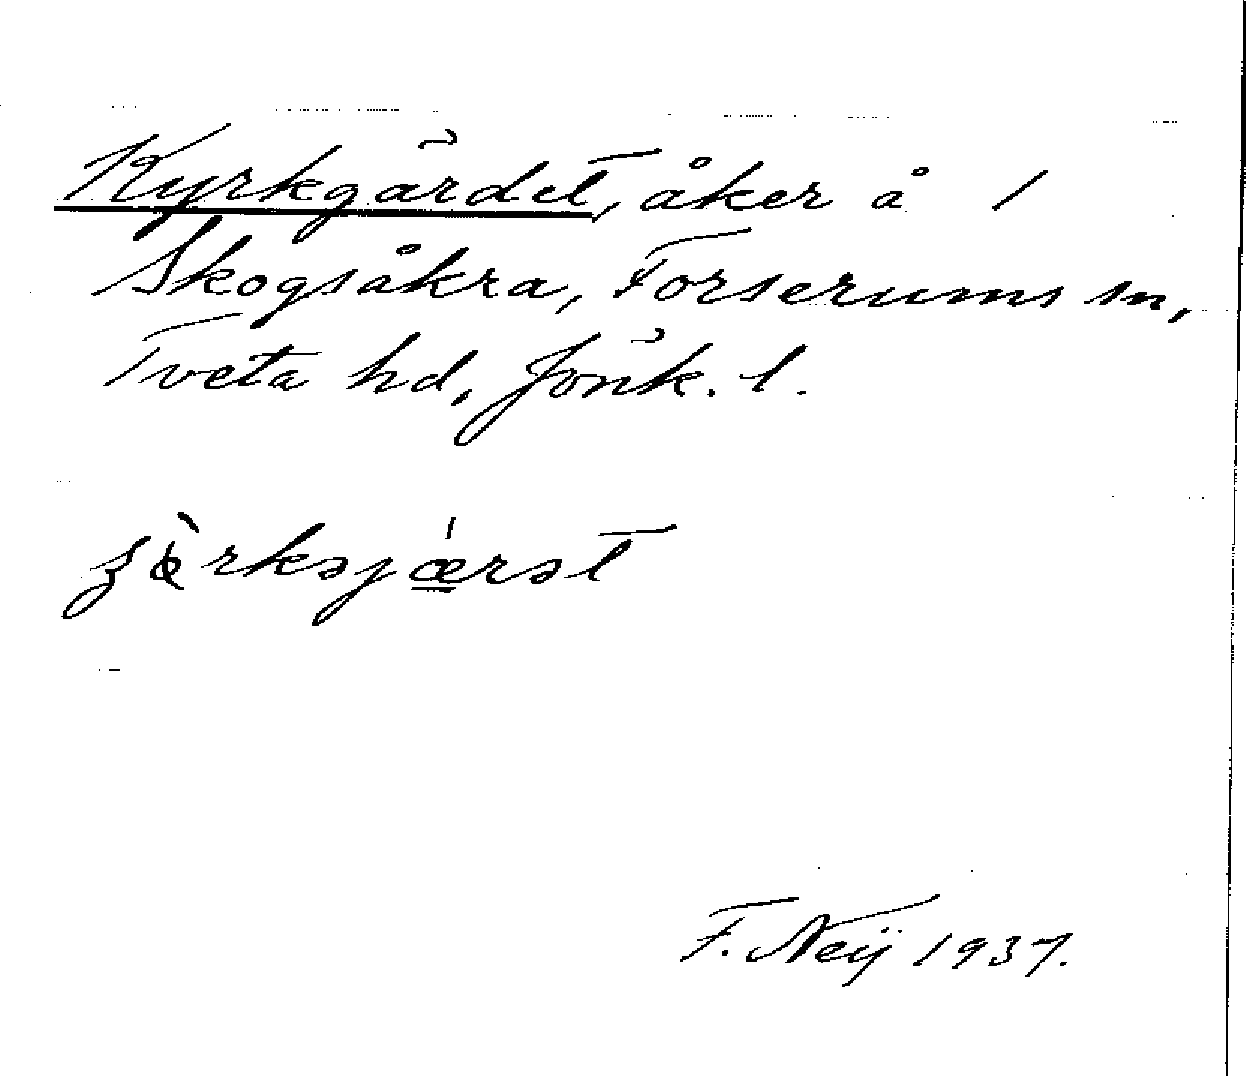 Kyrkgärdet, åker å 1
Skogsåkra, Forserums sn,
Tveta hd, Jönk. l.
F. Neÿ 1937.